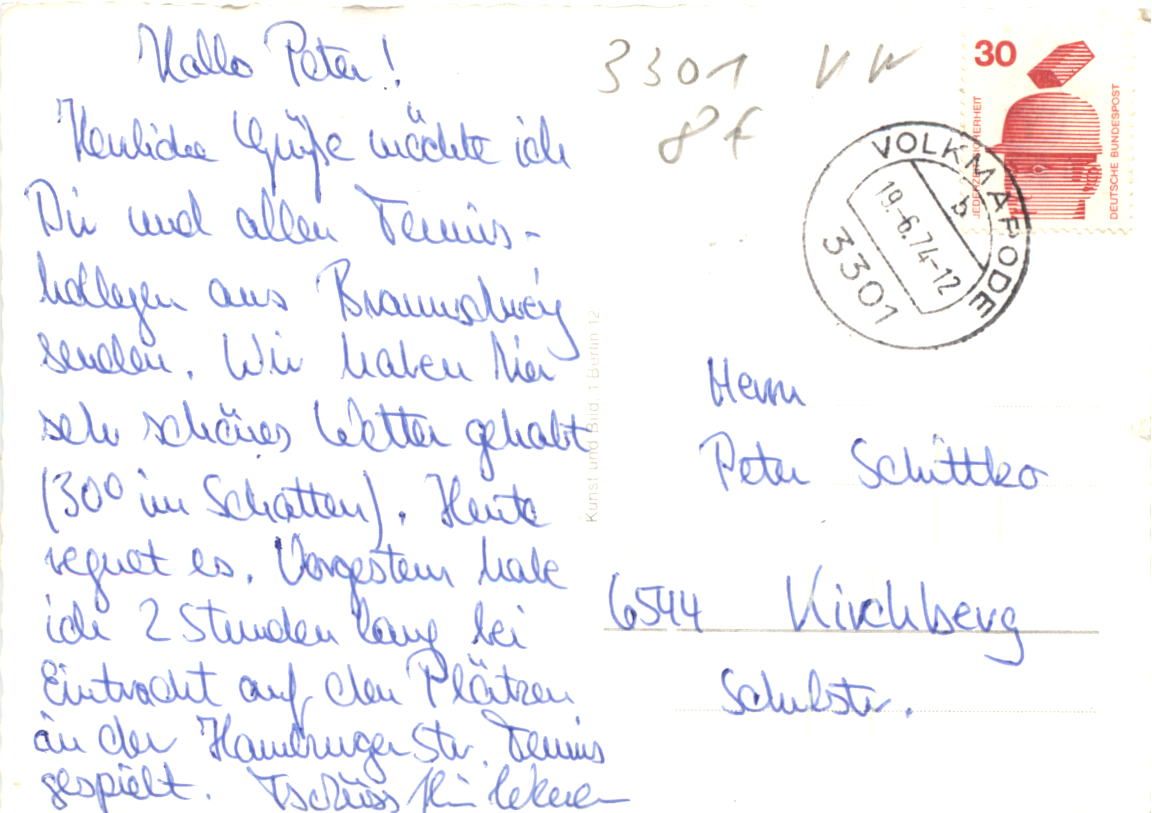 Hallo Peter!
Herzliche Grüße möchte ich
Dir und allen Tennis-
kollegen aus Braunschweig
senden. Wir haben hier
sehr schönes Wetter gehabt
(30° im Schatten). Heute
regnet es. Vorgestern habe
ich 2 Stunden lang bei
Eintracht auf den Plätzen
an der Hamburger Str. Tennis
gespielt. Tschüss
3301 VW
8f
30
JEDERZEIT SICHERHEIT
DEUTSCHE BUNDESPOST
VOLKMARODE
b
19.-6.74-12
3301
Kunst und Bild, 1 Berlin 12
Herrn
Peter Schittko
6544 Kirchberg
Schulstr.